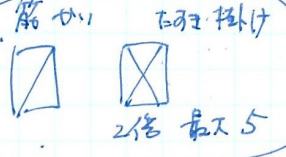 筋かい たすき掛け
2倍 最大 5